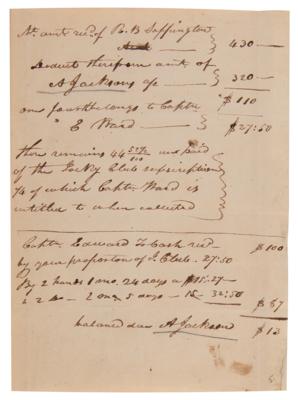 Nt. amt recd. of R. B Sappington 430 —
Deduct therefrom amt. of
A Jacksons 320 —
one fourth belongs to Captn $110
E Ward — $27:50
there remains 44 50/100 unpaid
of the Jockey Club subscription
1/4 of which Captn. Ward is
intitled to when collected
Captn. Edward To Cash recd — $100
by your proportion of J. Club. 27:50
By 2 hands 1 one, 24 days a $15-27—
2 2 do — 2 one 5 days — 15 32:50 $87
balance due A Jackson $13